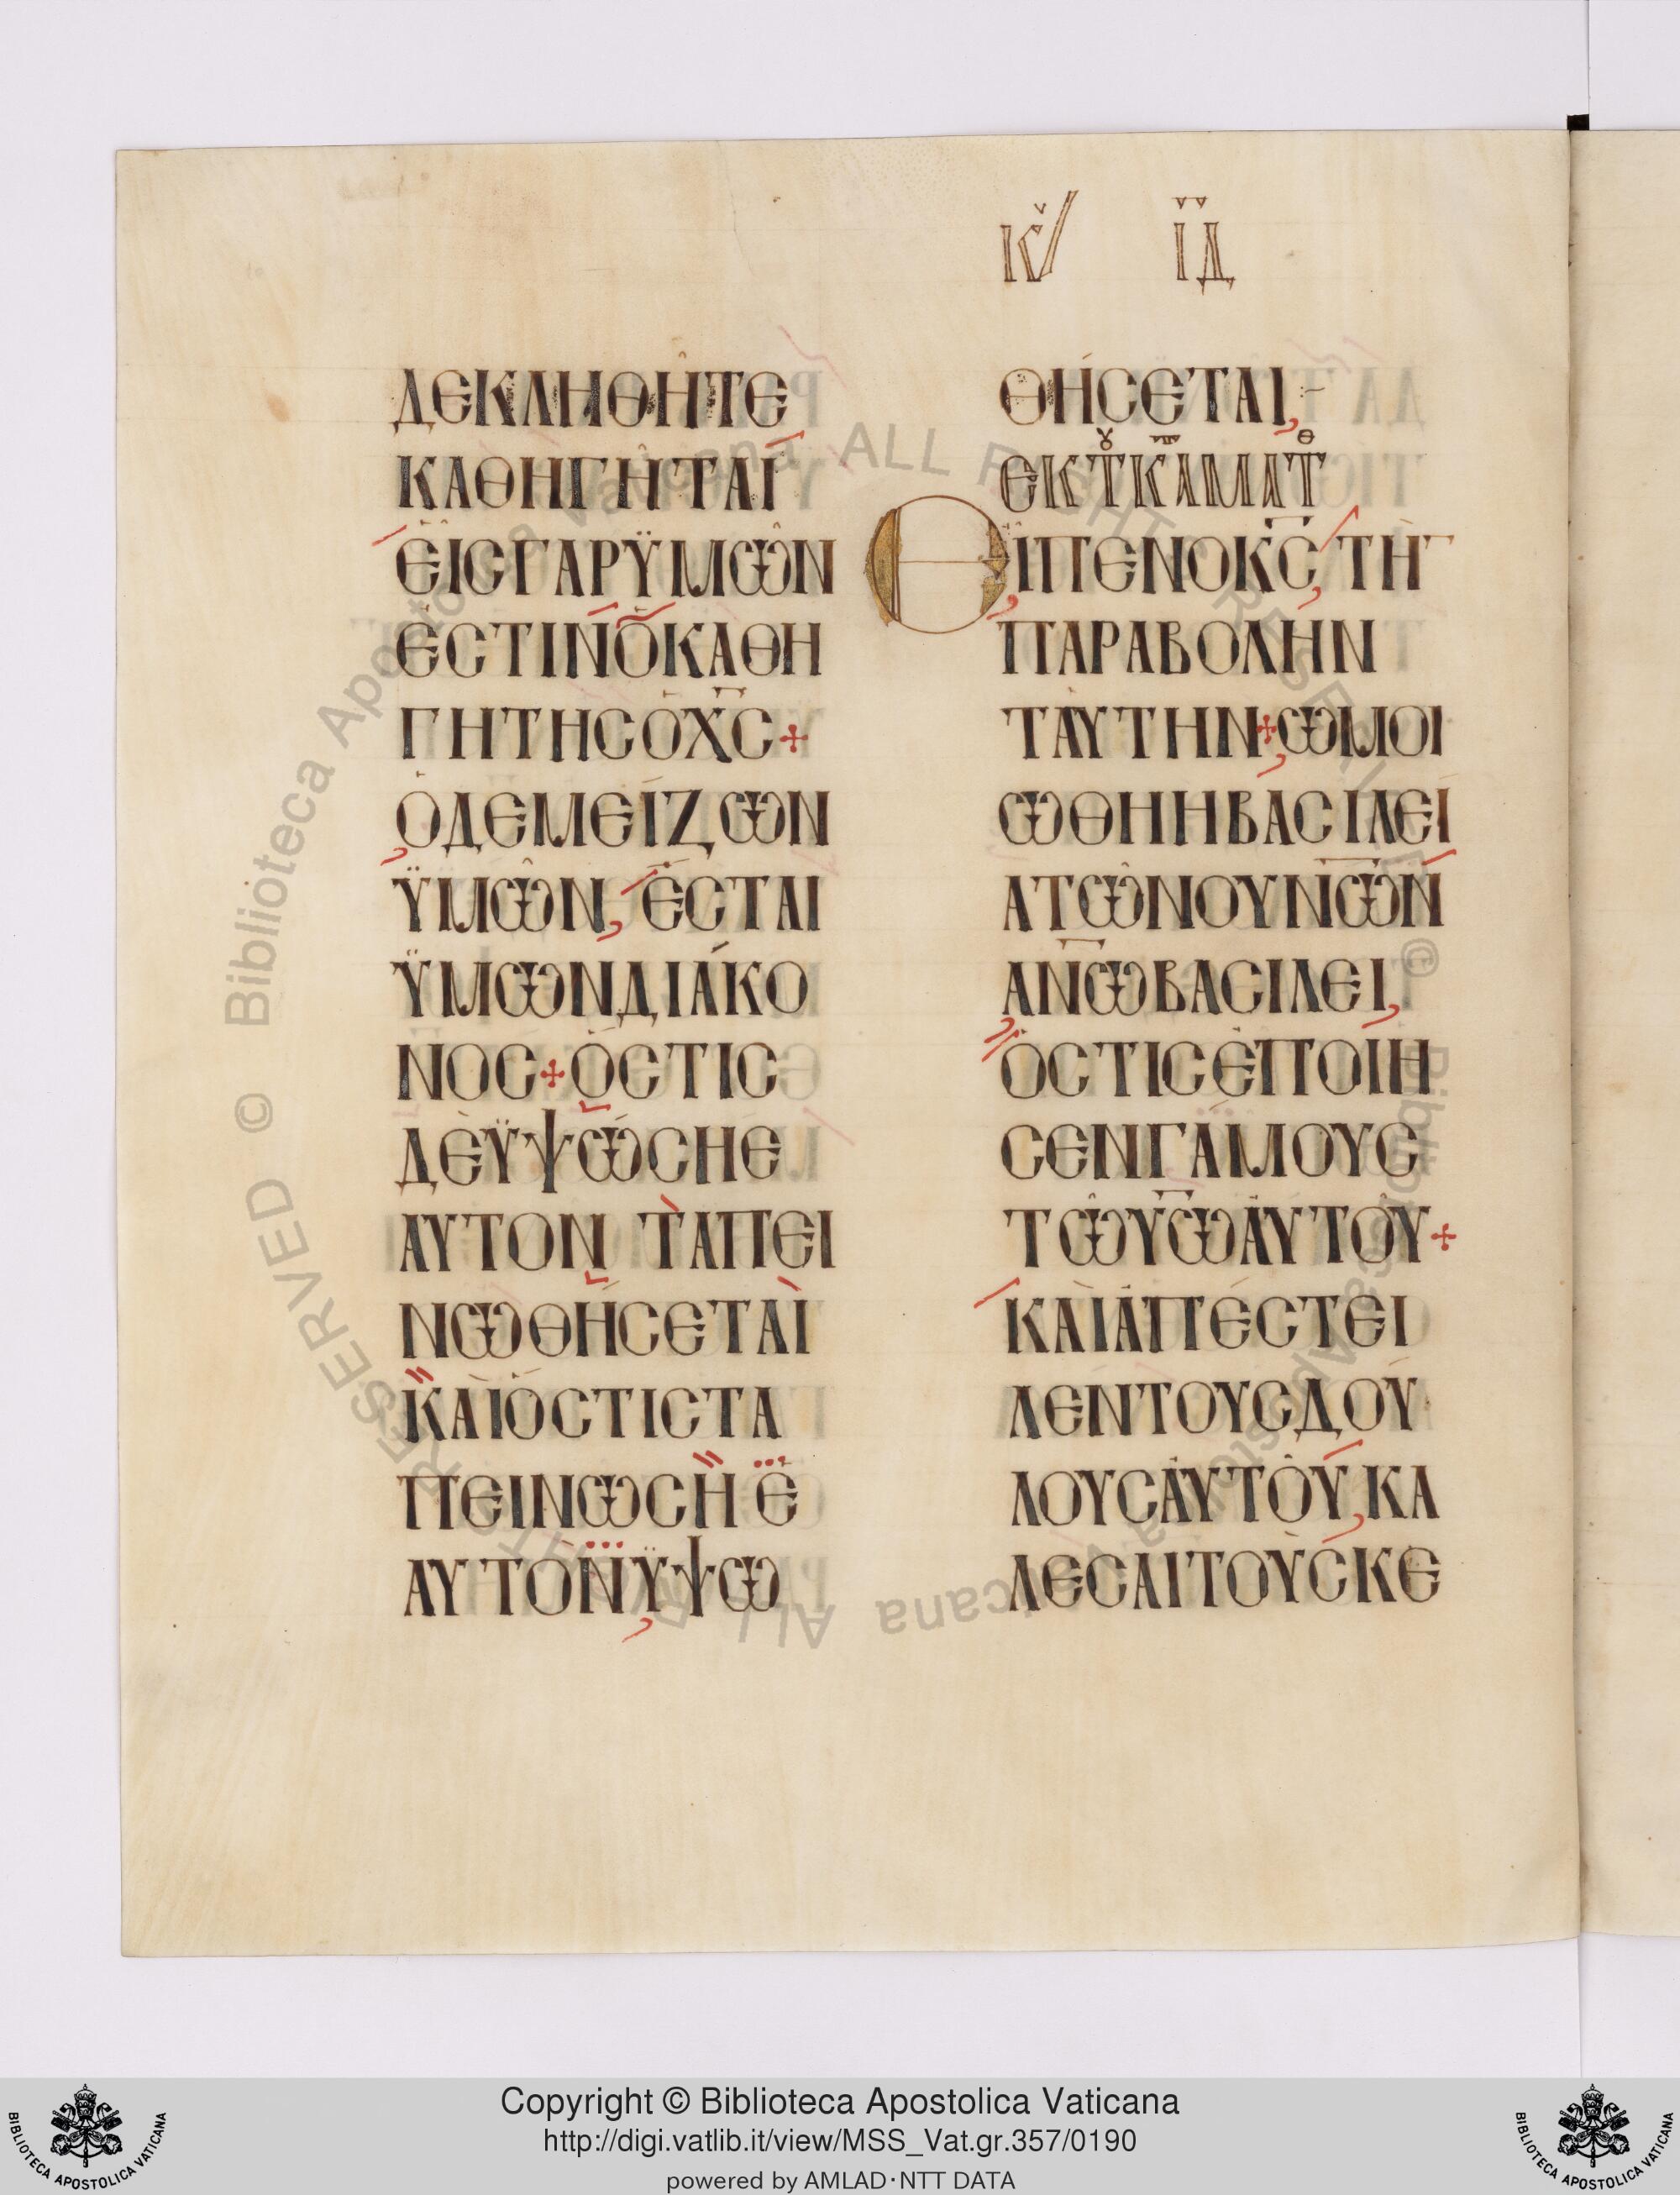 Κυ ΙΔ
ΔΕΚΛΗΘΗΤΕ
ΚΑΘΗΓΗΤΑΙ
ΕΙΣΓΑΡΫΜΩΝ
ΕΣΤΙΝΟΚΑΘΗ
ΓΗΤΗΣΟΧΣ+
ΟΔΕΜΕΙΖΩΝ
ΫΜΩΝ, ΕΣΤΑΙ
ΫΜΩΝΔΙΑΚΟ
ΝΟΣ+ΟΣΤΙΣ
ΔΕΫΨΩΣΗΕ
ΑΥΤΟΝ ΤΑΠΕΙ
ΝΩΘΗΣΕΤΑΙ
ΚΑΙΟΣΤΙΣΤΑ
ΠΕΙΝΩΣΗ Ε
ΑΥΤΟΝ,ΫΨΩ
ΘΗΣΕΤΑΙ,
ΕΚΤΚΑΜΑΤ
ΕΙΠΕΝΟΚΣ, ΤΗ
ΠΑΡΑΒΟΛΗΝ
ΤΑΥΤΗΝ+ΩΜΟΙ
ΩΘΗΗΒΑΣΙΛΕΙ
ΑΤΩΝΟΥΝΩΝ
ΑΝΩΒΑΣΙΛΕΙ,
ΟΣΤΙΣΕΠΟΙΗ
ΣΕΝΓΑΜΟΥΣ
ΤΩΥΩΑΥΤΟΥ+
ΚΑΙΑΠΕΣΤΕΙ
ΛΕΝΤΟΥΣΔΟΥ
ΛΟΥΣΑΥΤΟΥ,ΚΑ
ΛΕΣΑΙΤΟΥΣΚΕ
© Biblioteca Apostolica Vaticana ALL RIGHT RESERVED
Copyright © Biblioteca Apostolica Vaticana
http://digi.vatlib.it/view/MSS_Vat.gr.357/0190
powered by AMLAD·NTT DATA
BIBLIOTECA APOSTOLICA VATICANA
BIBLIOTECA APOSTOLICA VATICANA